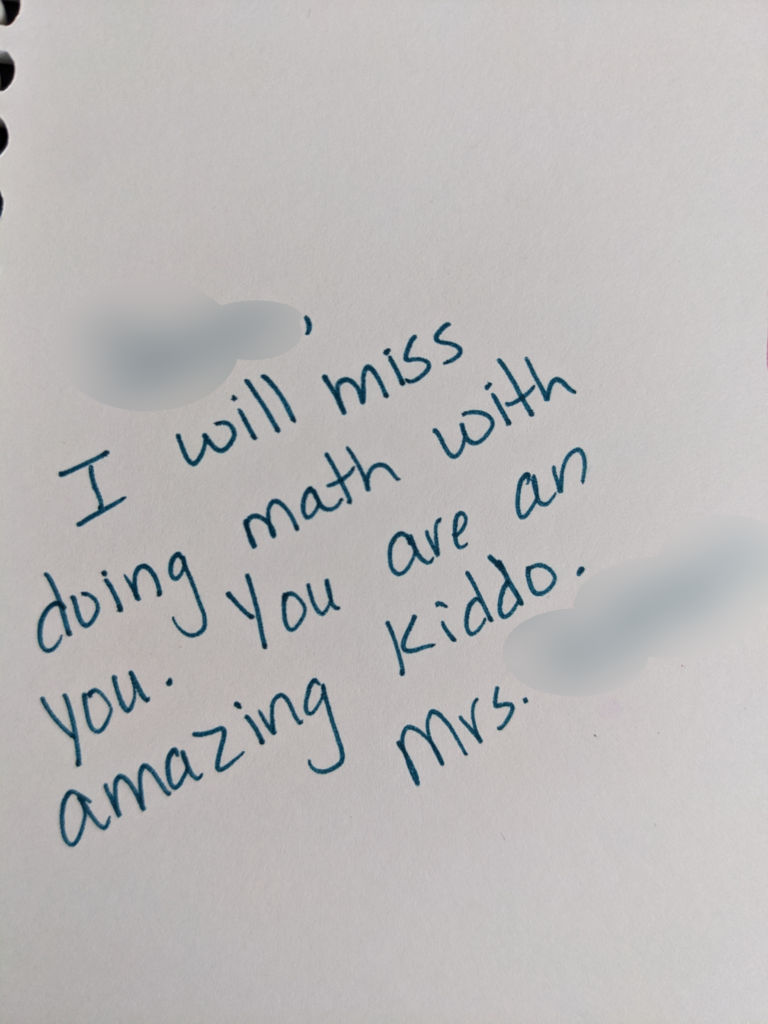 ,
I will miss
doing math with
you. You are an
amazing kiddo.
Mrs.